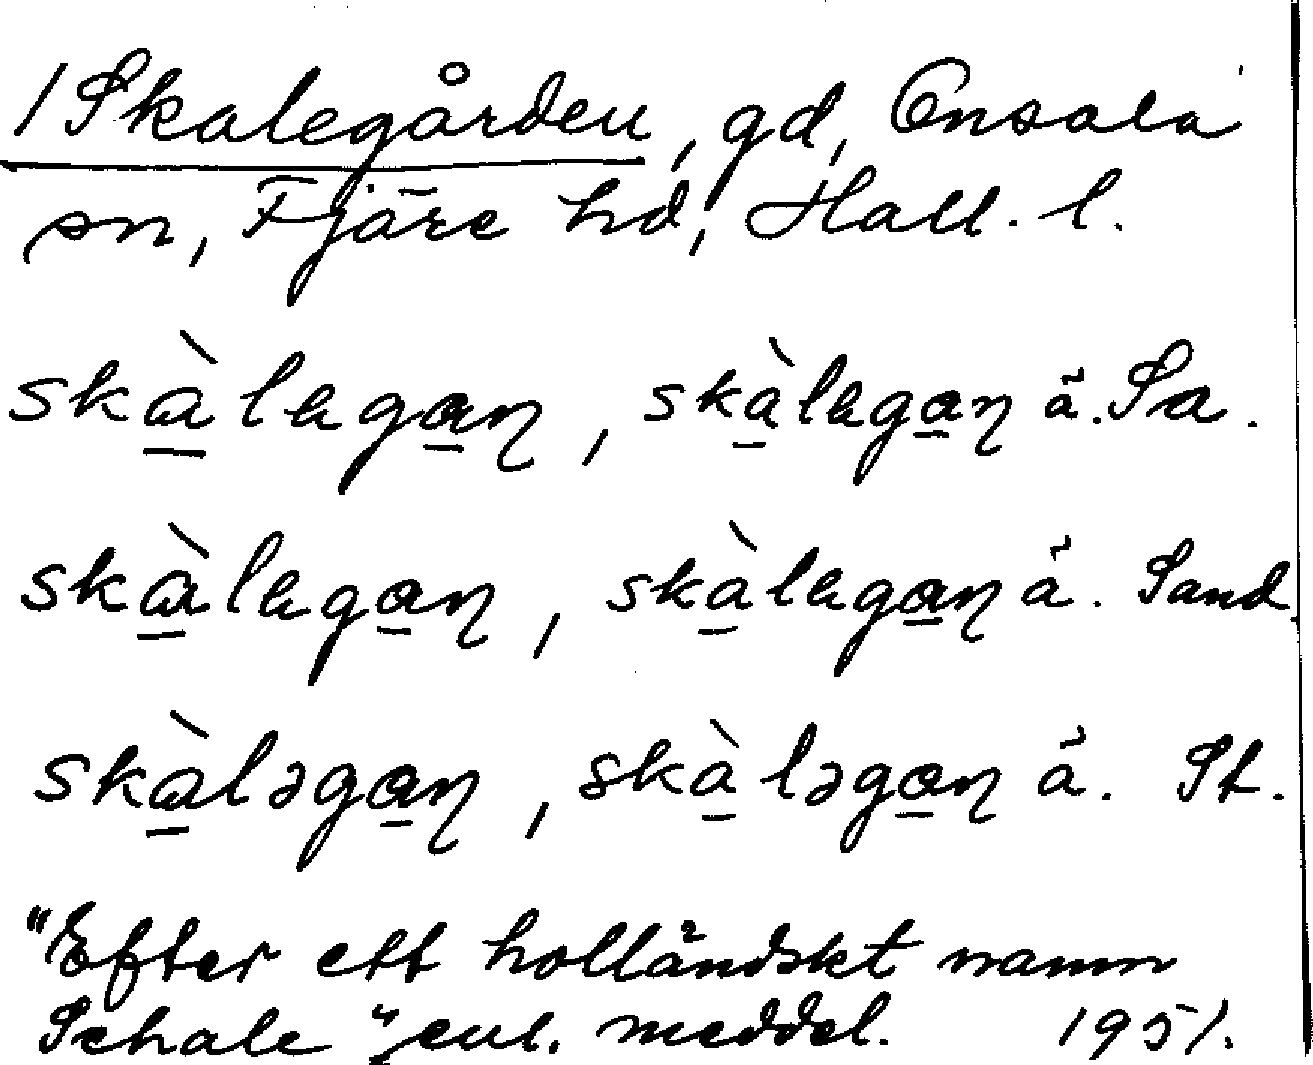 /Skalegården, gd, Onsala
sn, Fjäre hd, Hall. l.
skàlegan̡, skàlegan̡ ä. Sa.
skàlegan̡, skàlegan̡ ä. Sand.
skàləgan̡, skàləgan̡ ä. St.
"Efter ett holländskt namn
Schale" enl. meddel. 1951.